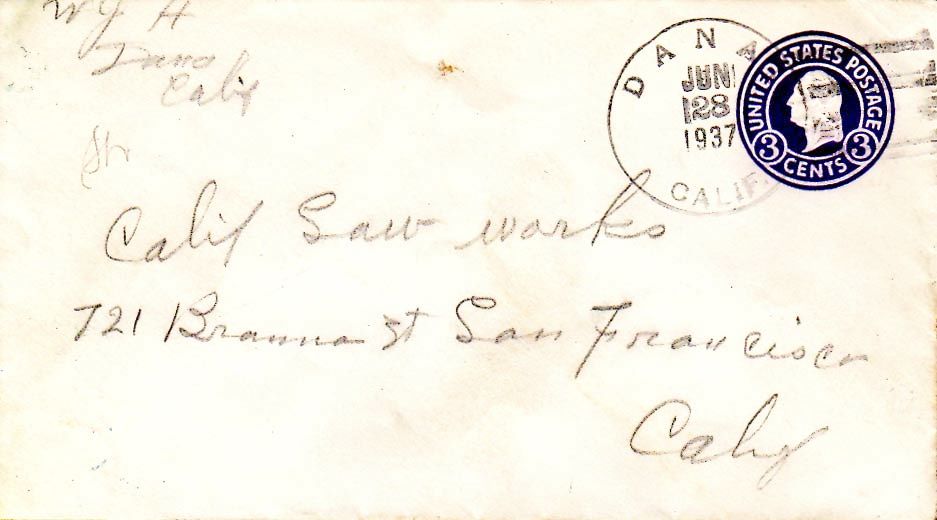 Calif
DANA
CALIF.
JUN
28
1937
UNITED STATES POSTAGE
3 CENTS 3
Calif Saw works
721 Branna St San Francisco
Calif